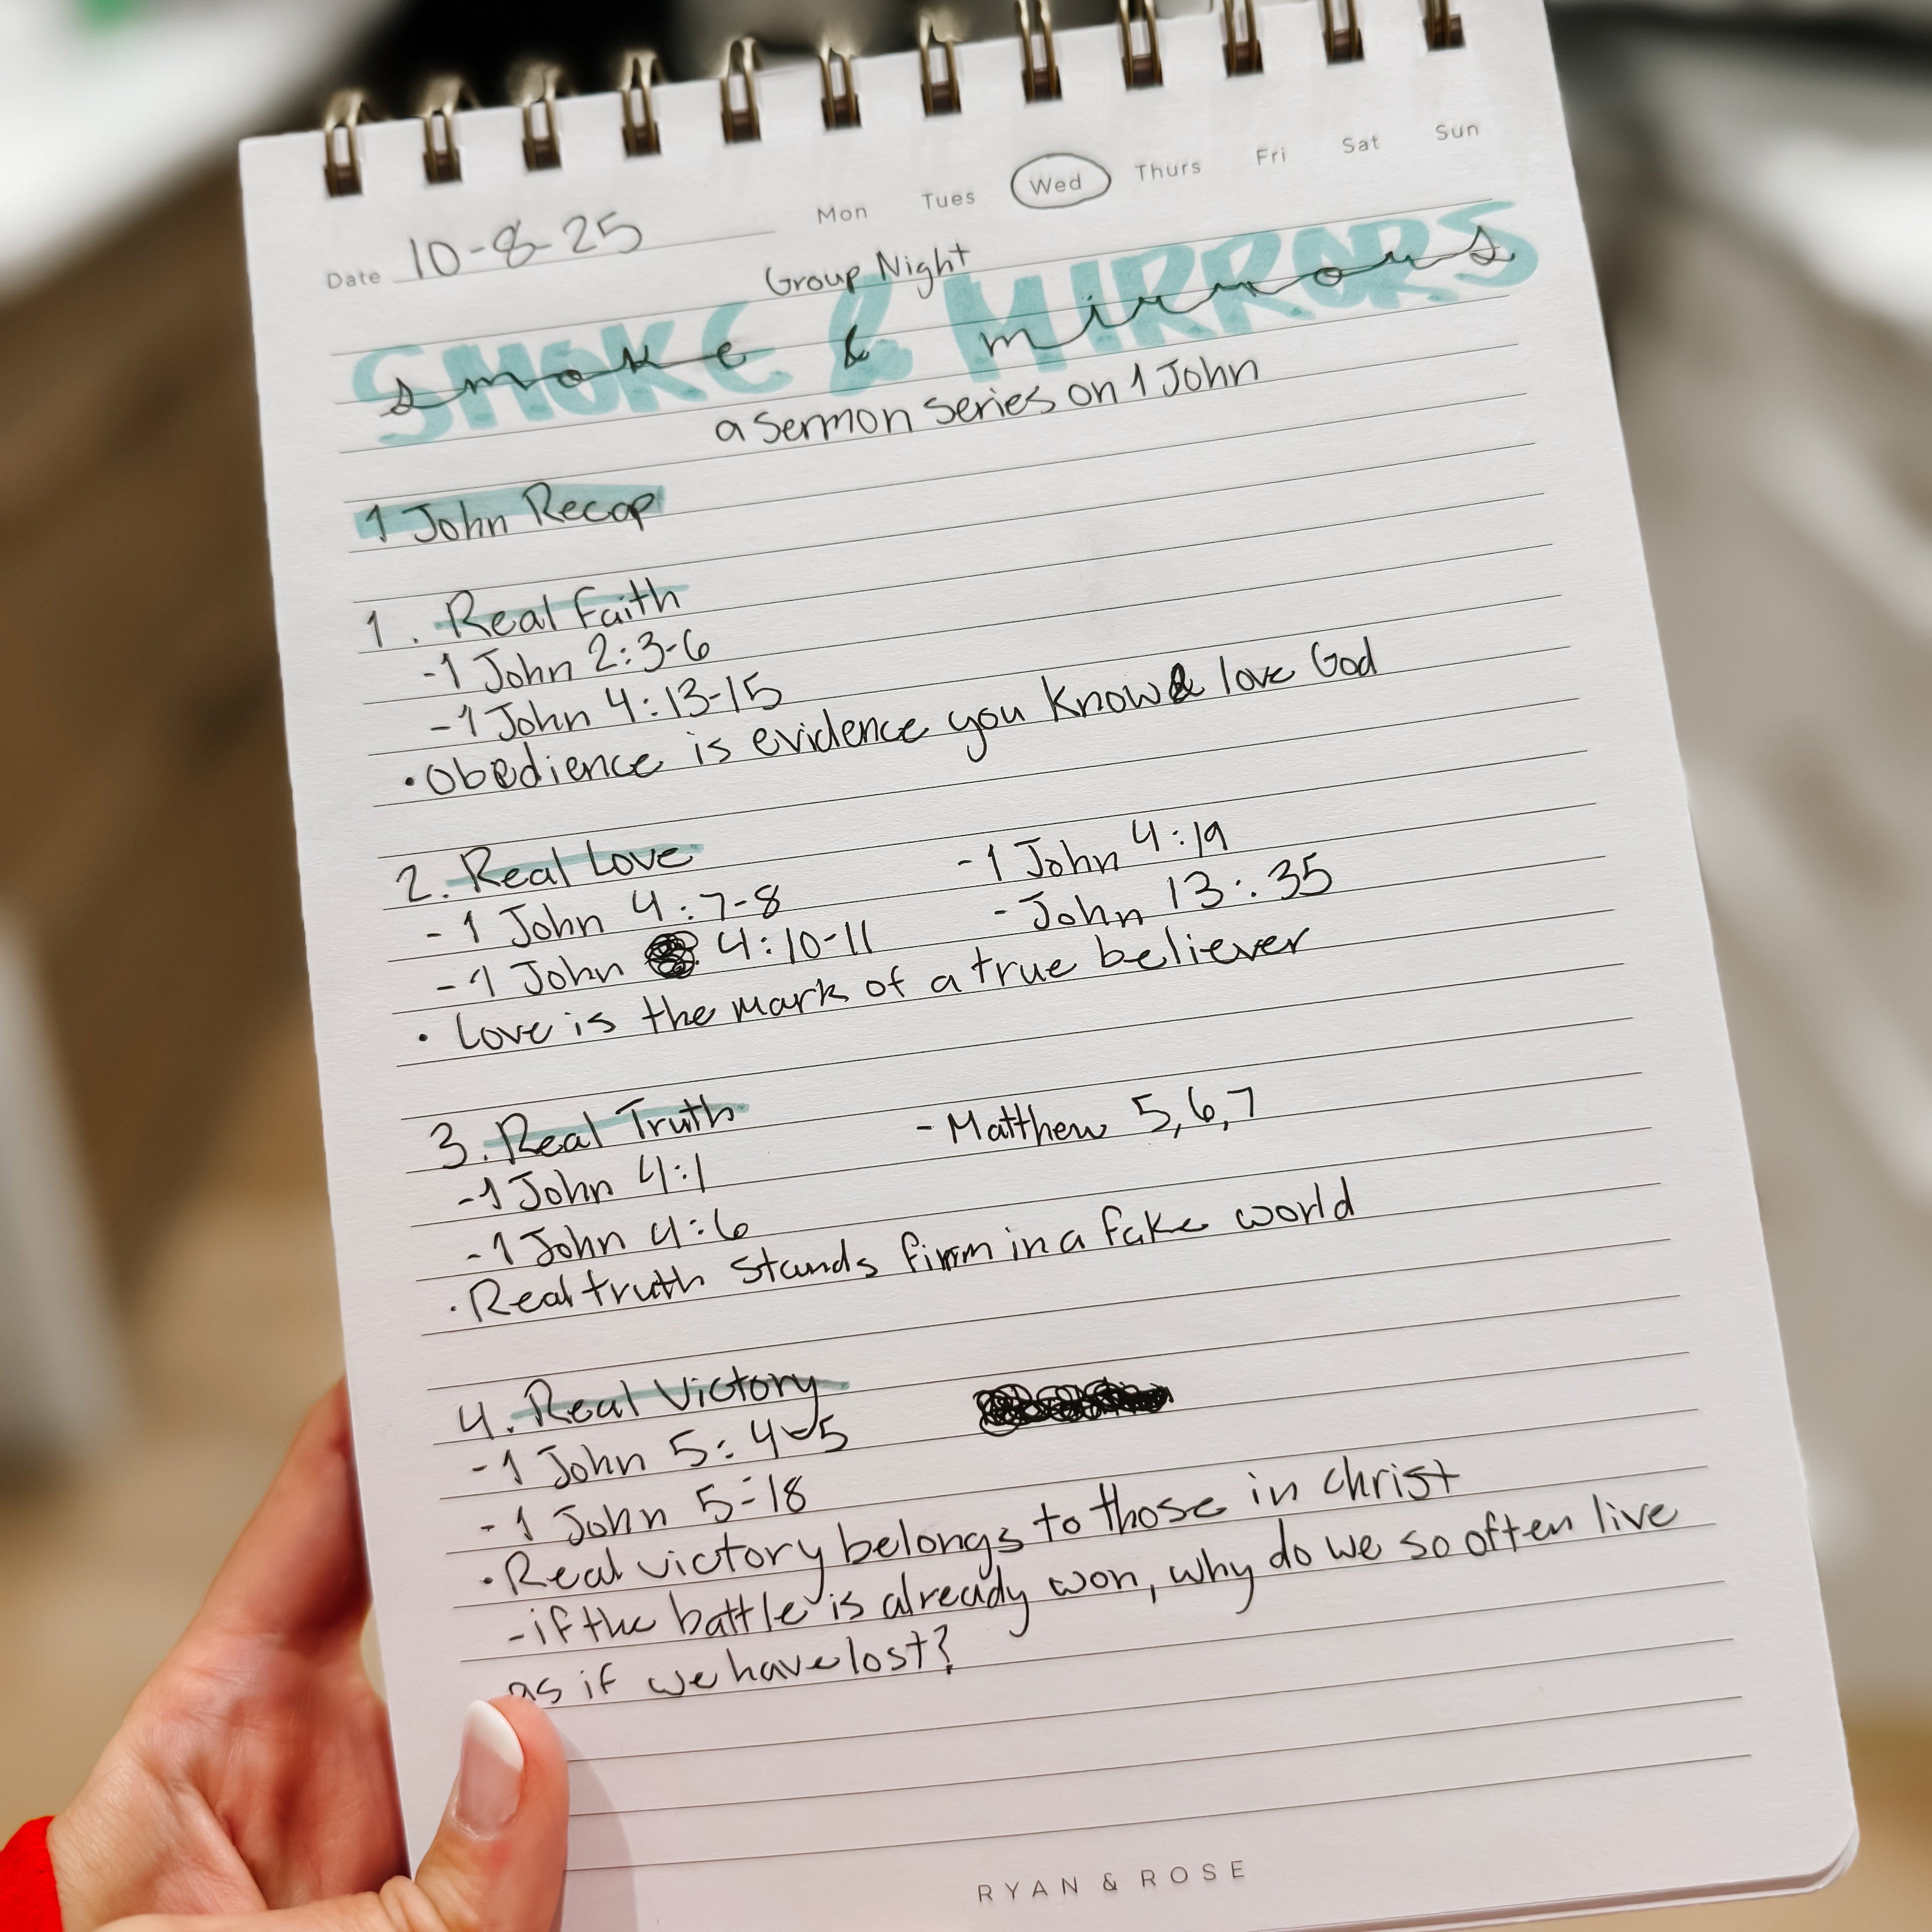 Mon Tues Wed Thurs Fri Sat Sun
Date 10-8-25
Group Night
SMOKE & MIRRORS
smoke & mirrors
a sermon series on 1 John
1 John Recap
1. Real Faith
-1 John 2:3-6
-1 John 4:13-15
•Obedience is evidence you know & love God
2. Real Love
- 1 John 4:7-8
- 1 John 4:10-11
- 1 John 4:19
- John 13:35
• Love is the mark of a true believer
3. Real Truth
-1 John 4:1
-1 John 4:6
- Matthew 5,6,7
•Real truth stands firm in a fake world
4. Real Victory
-1 John 5:4-5
- 1 John 5:18
•Real victory belongs to those in christ
-if the battle is already won, why do we so often live
as if we have lost?
RYAN & ROSE